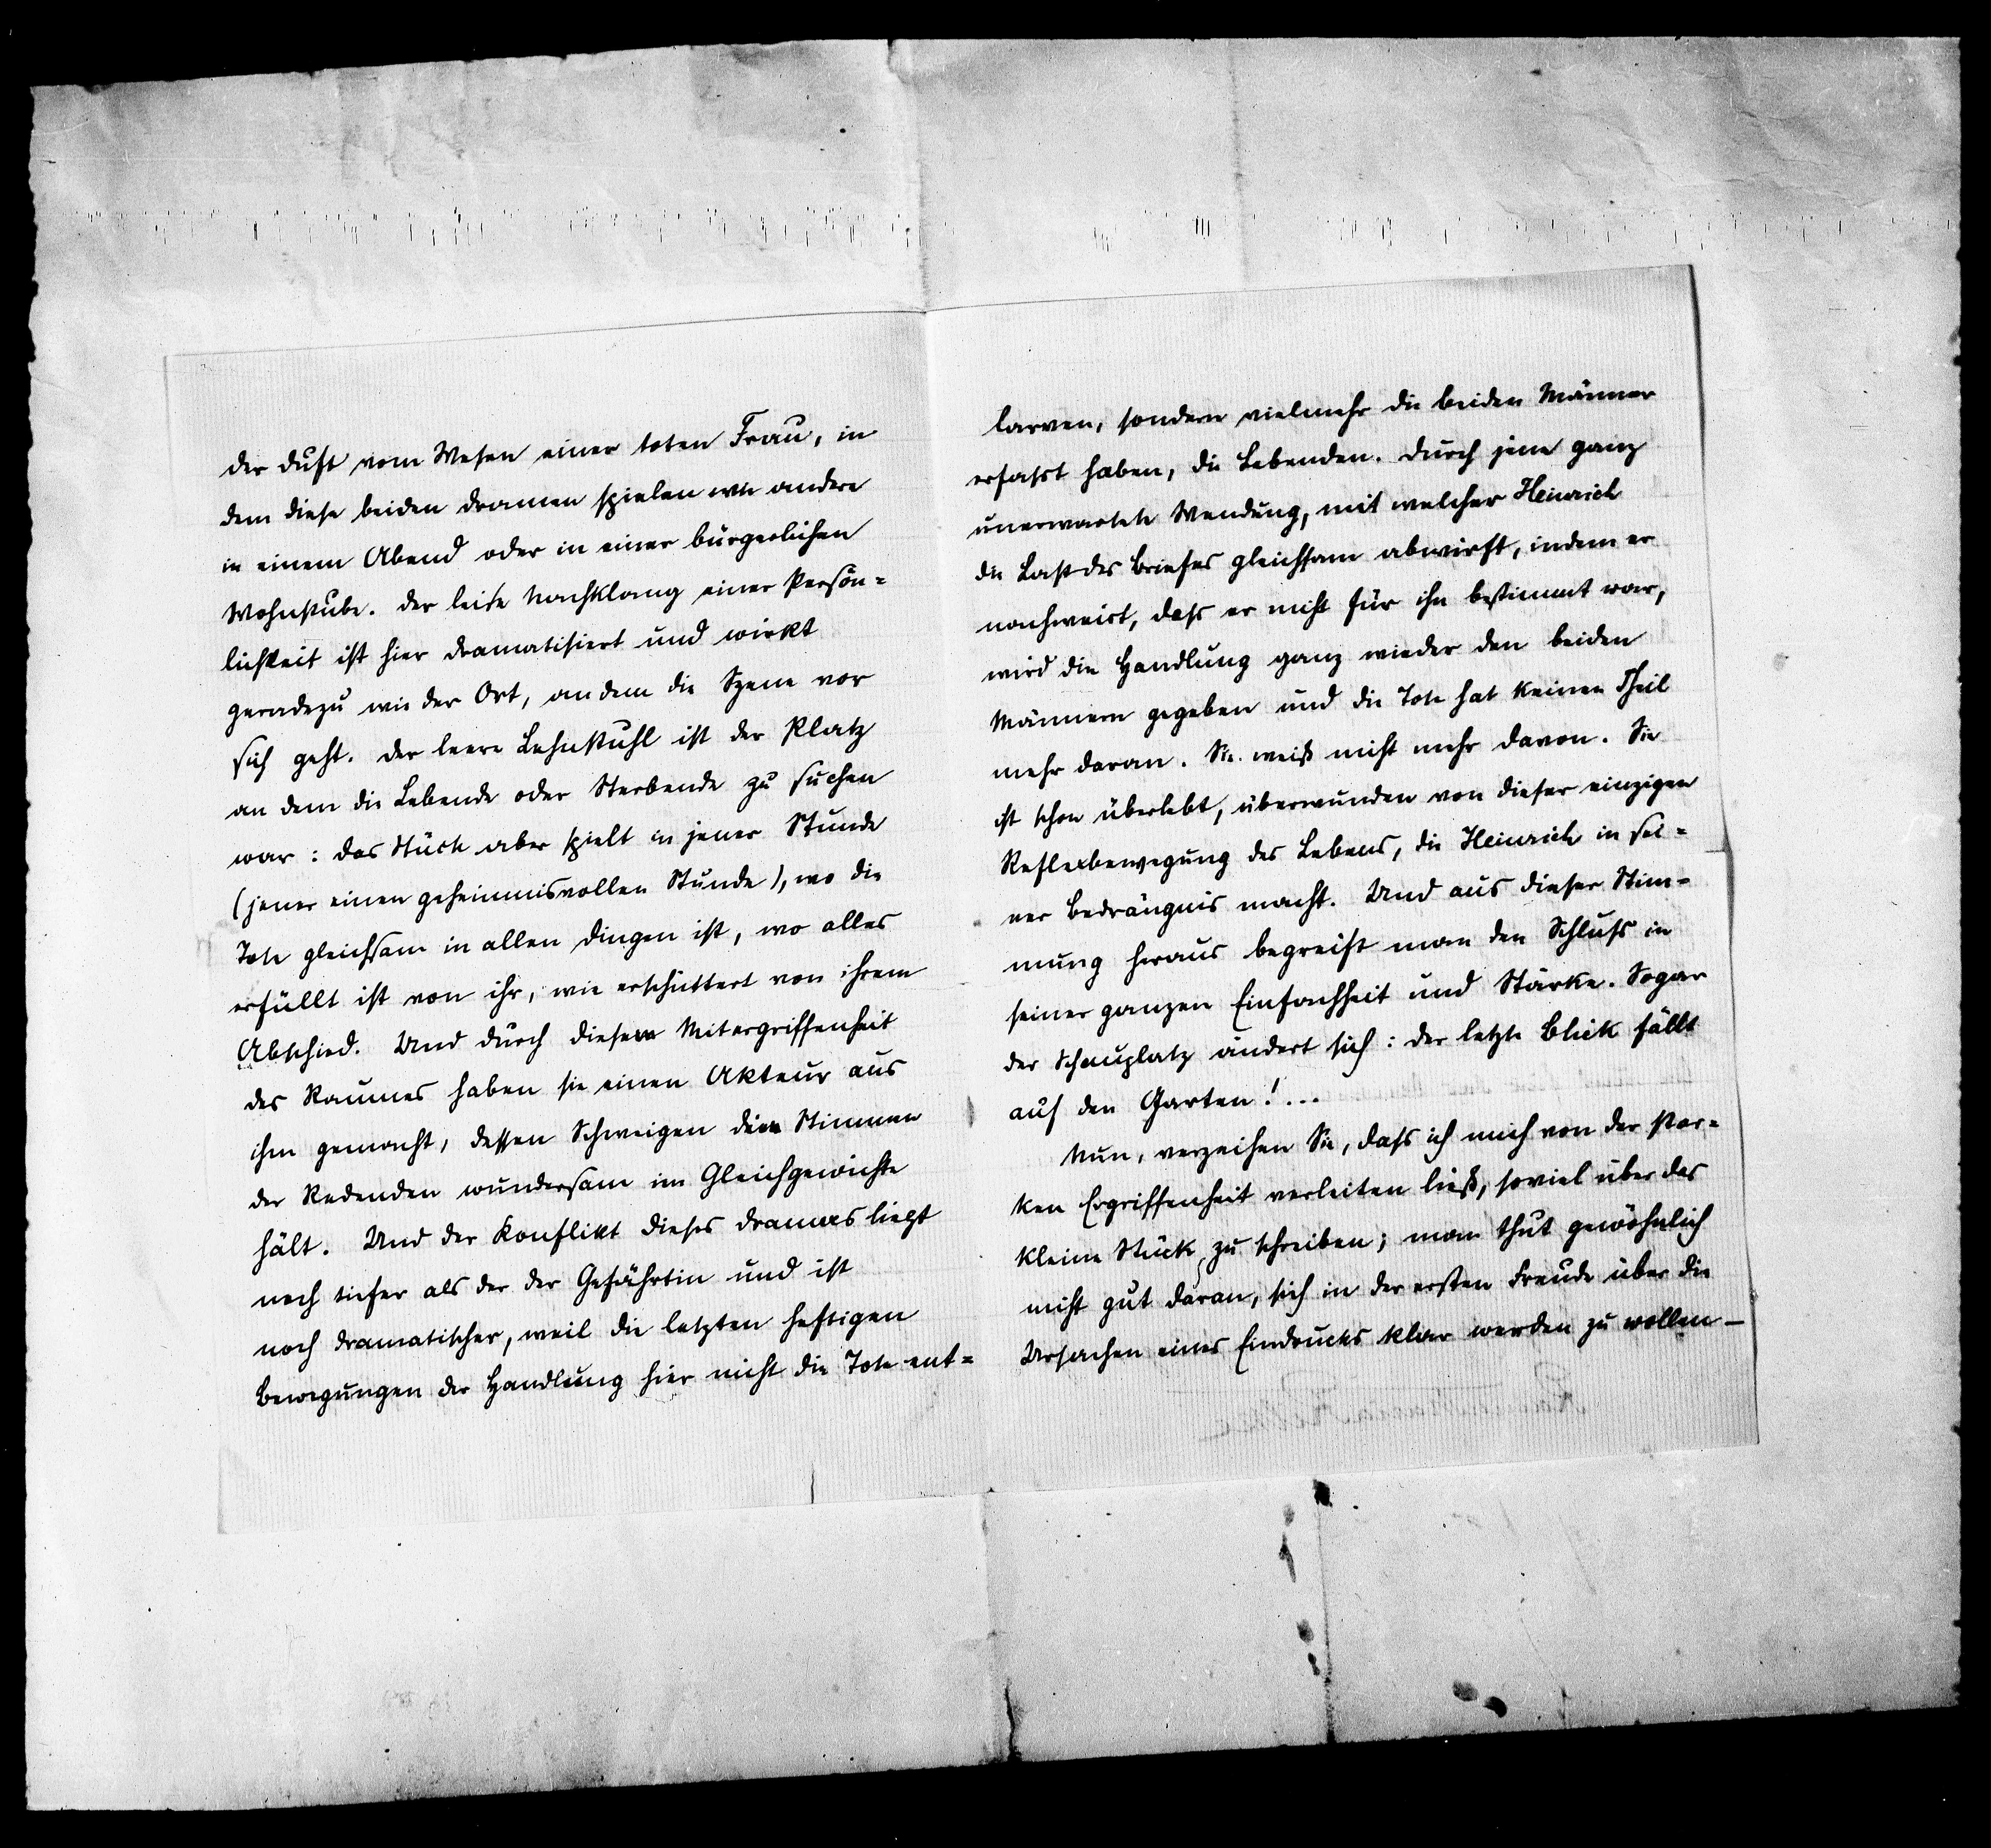 der Duft vom Wesen einer toten Frau, in
dem diese beiden Dramen spielen wie andere
in einem Abend oder in einer bürgerlichen
Wohnstube. Der leise Nachklang einer Persön=
lichkeit ist hier dramatisiert und wirkt
geradezu wie der Ort, an dem die Szene vor
sich geht. Der leere Lehnstuhl ist der Platz
an dem die Lebende oder Sterbende zu suchen
war: das Stück aber spielt in jener Stunde
(jener einen geheimnisvollen Stunde), wo die
Tote gleichsam in allen Dingen ist, wo alles
erfüllt ist von ihr, wie erschüttert von ihrem
Abschied. Und durch diese Mitergriffenheit
des Raumes haben sie einen Akteur aus
ihm gemacht, dessen Schweigen den Stimmen
der Redenden wundersam im Gleichgewichte
hält. Und der Konflikt dieses Dramas liegt
noch tiefer als der der Gefährtin und ist
noch dramatischer, weil die letzten heftigen
Bewegungen der Handlung hier nicht die Tote ent=
larven, sondern vielmehr die beiden Männer
erfasst haben, die Lebenden. Durch jene ganz
unerwartete Wendung, mit welcher Heinrich
die Last des Briefes gleichsam abwirft, indem er
nachweist, dass er nicht für ihn bestimmt war,
wird die Handlung ganz wieder den beiden
Männern gegeben und die Tote hat keinen Theil
mehr daran. Sie weiß nicht mehr davon. Sie
ist schon überlebt, überwunden von dieser einzigen
Reflexbewegung des Lebens, die Heinrich in sei=
ner Bedrängnis macht. Und aus dieser Stim=
mung heraus begreift man den Schluss in
seiner ganzen Einfachheit und Stärke. Sogar
der Schauplatz ändert sich: der letzte Blick fällt
auf den Garten!...
Nun, verzeihen Sie, dass ich mich von der star=
ken Ergriffenheit verleiten ließ, soviel über das
kleine Stück zu schreiben; man thut gewöhnlich
nicht gut daran, sich in der ersten Freude über die
Ursachen eines Eindrucks klar werden zu wollen —